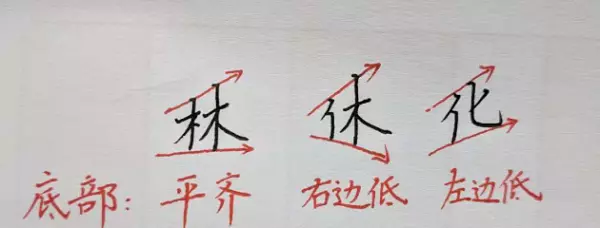 林 休 化
底部：平齐 右边低 左边低